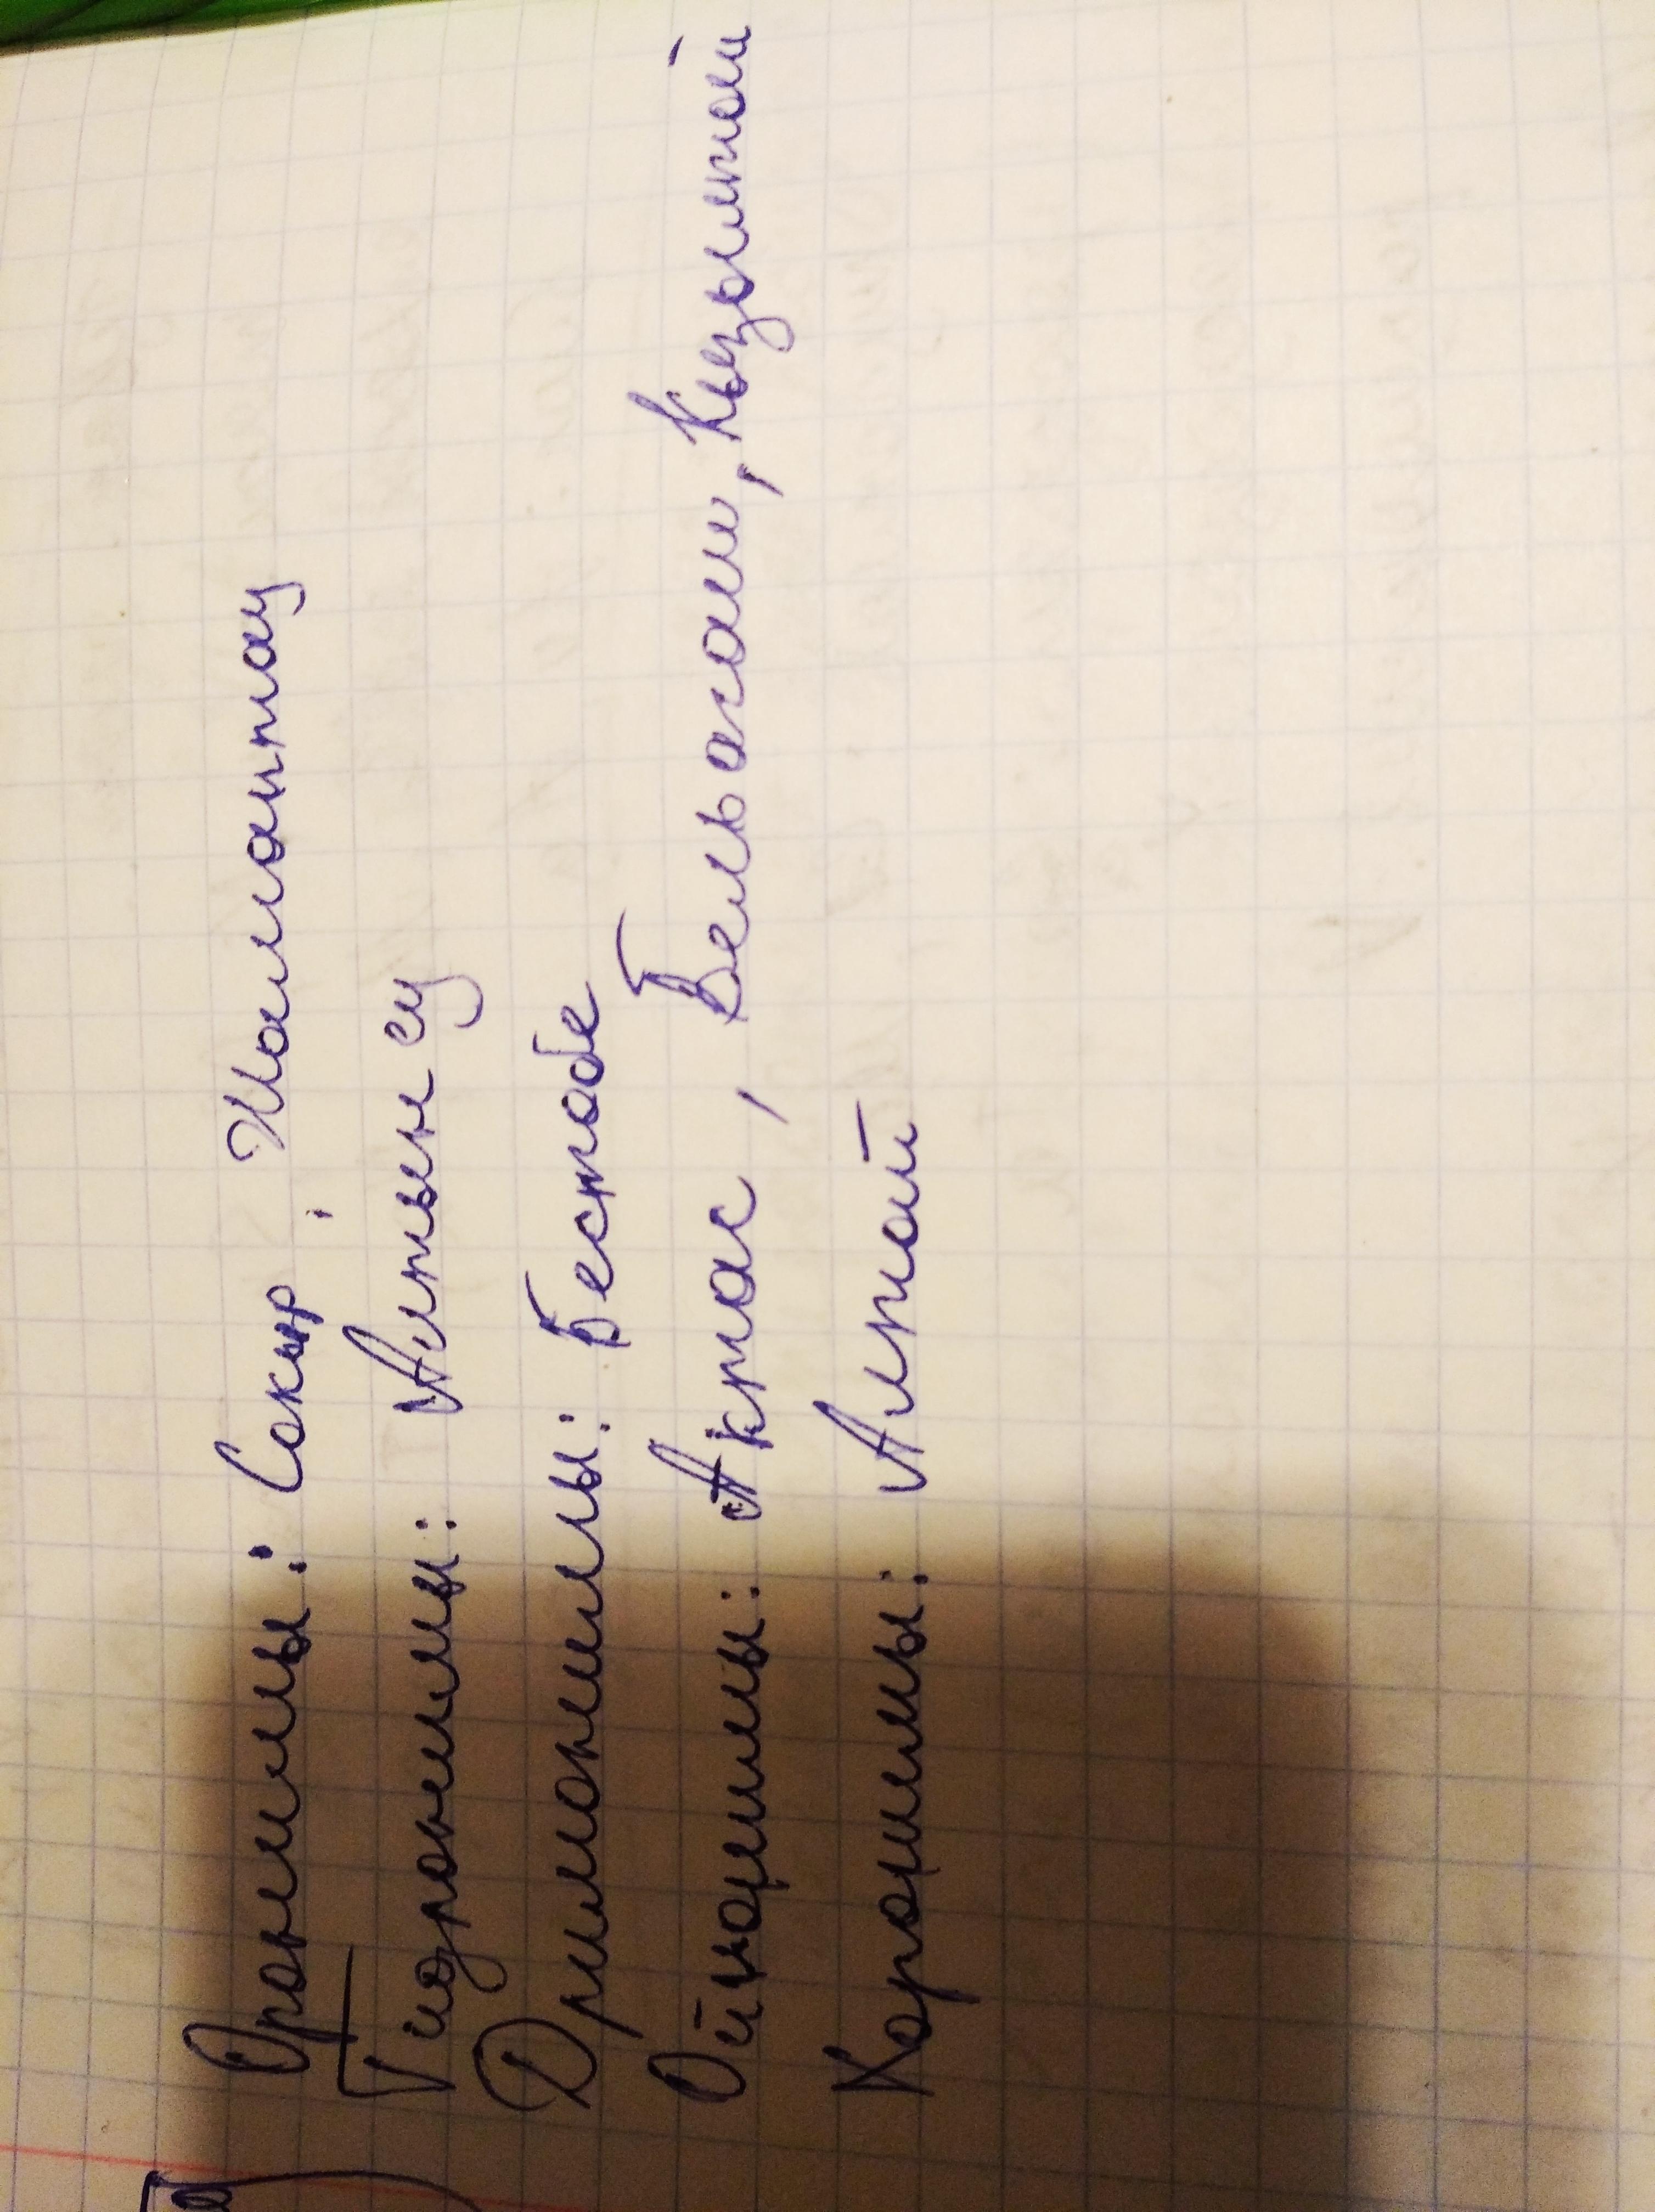 Оронимы: Сокыр, Жалантау
Гидронимы: Алтын су
Дримонимы: Бестобе
Ойконимы: Актас, Бельагаш, Кызылтой
Хоронимы: Алтай